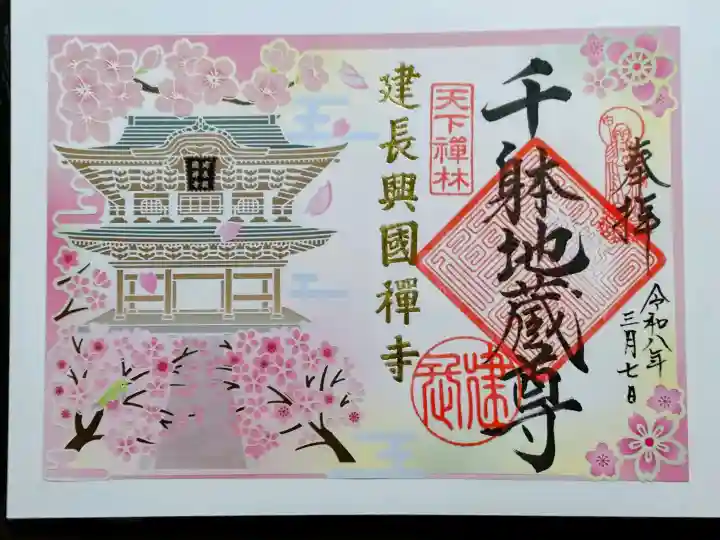 奉拝
令和八年
三月七日
千躰地蔵尊
天下禅林
建長興國禅寺